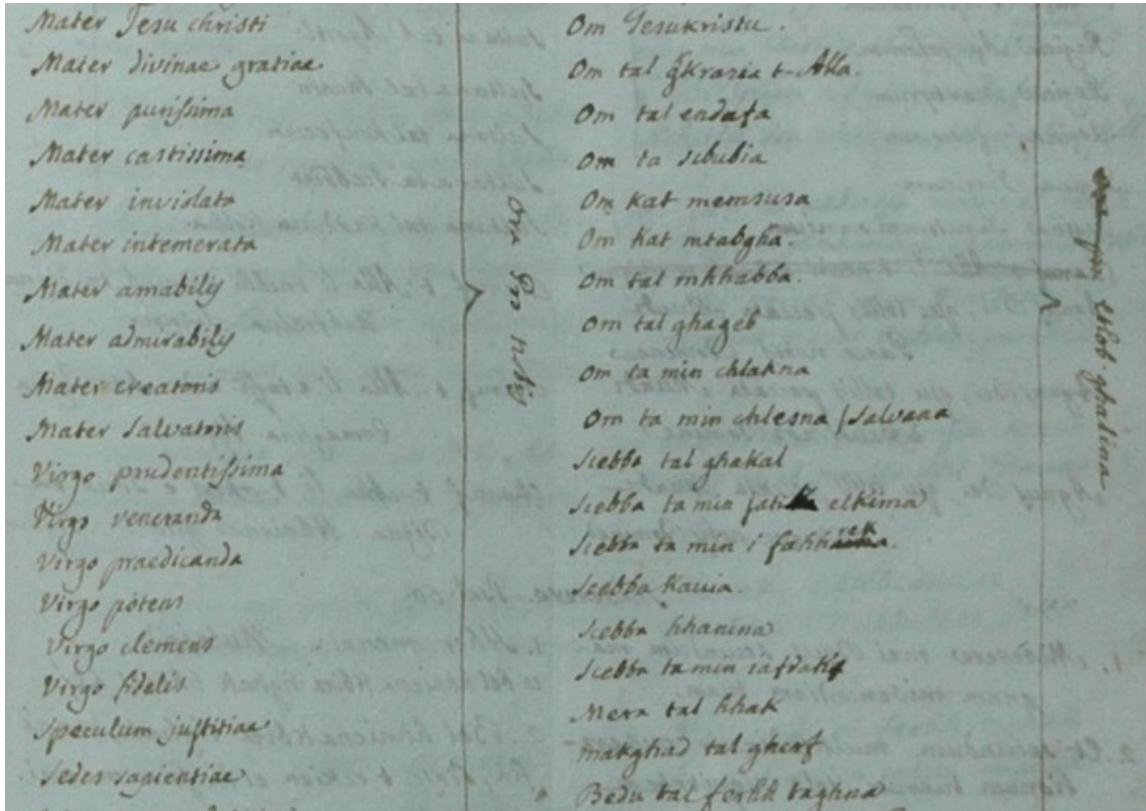 Mater Jesu christi
Mater divinae gratiae
Mater purissima
Mater castissima
Mater inviolata
Mater intemerata
Mater amabilis
Mater admirabilis
Mater creatoris
Mater Salvatoris
Virgo prudentissima
Virgo veneranda
Virgo praedicanda
Virgo potens
Virgo clemens
Virgo fidelis
Speculum justitiae
Sedes sapientiae
Ora pro nobis
Om Jesukristu.
Om tal gkrazia t-Alla.
Om tal endafa
Om ta scbubia
Om kat memsusa
Om kat mtabgha.
Om tal mhhabba.
Om tal ghageb
Om ta min chlakna
Om ta min chlesna / Salvana
Scebba tal ghakal
Scebba ta min elkima
Scebba ta min i
Scebba kauia.
Scebba hhanina
Scebba ta min
Mera tal hhak
Makghad tal gherf
Bedu tal ferhh taghna
etlob ghalina